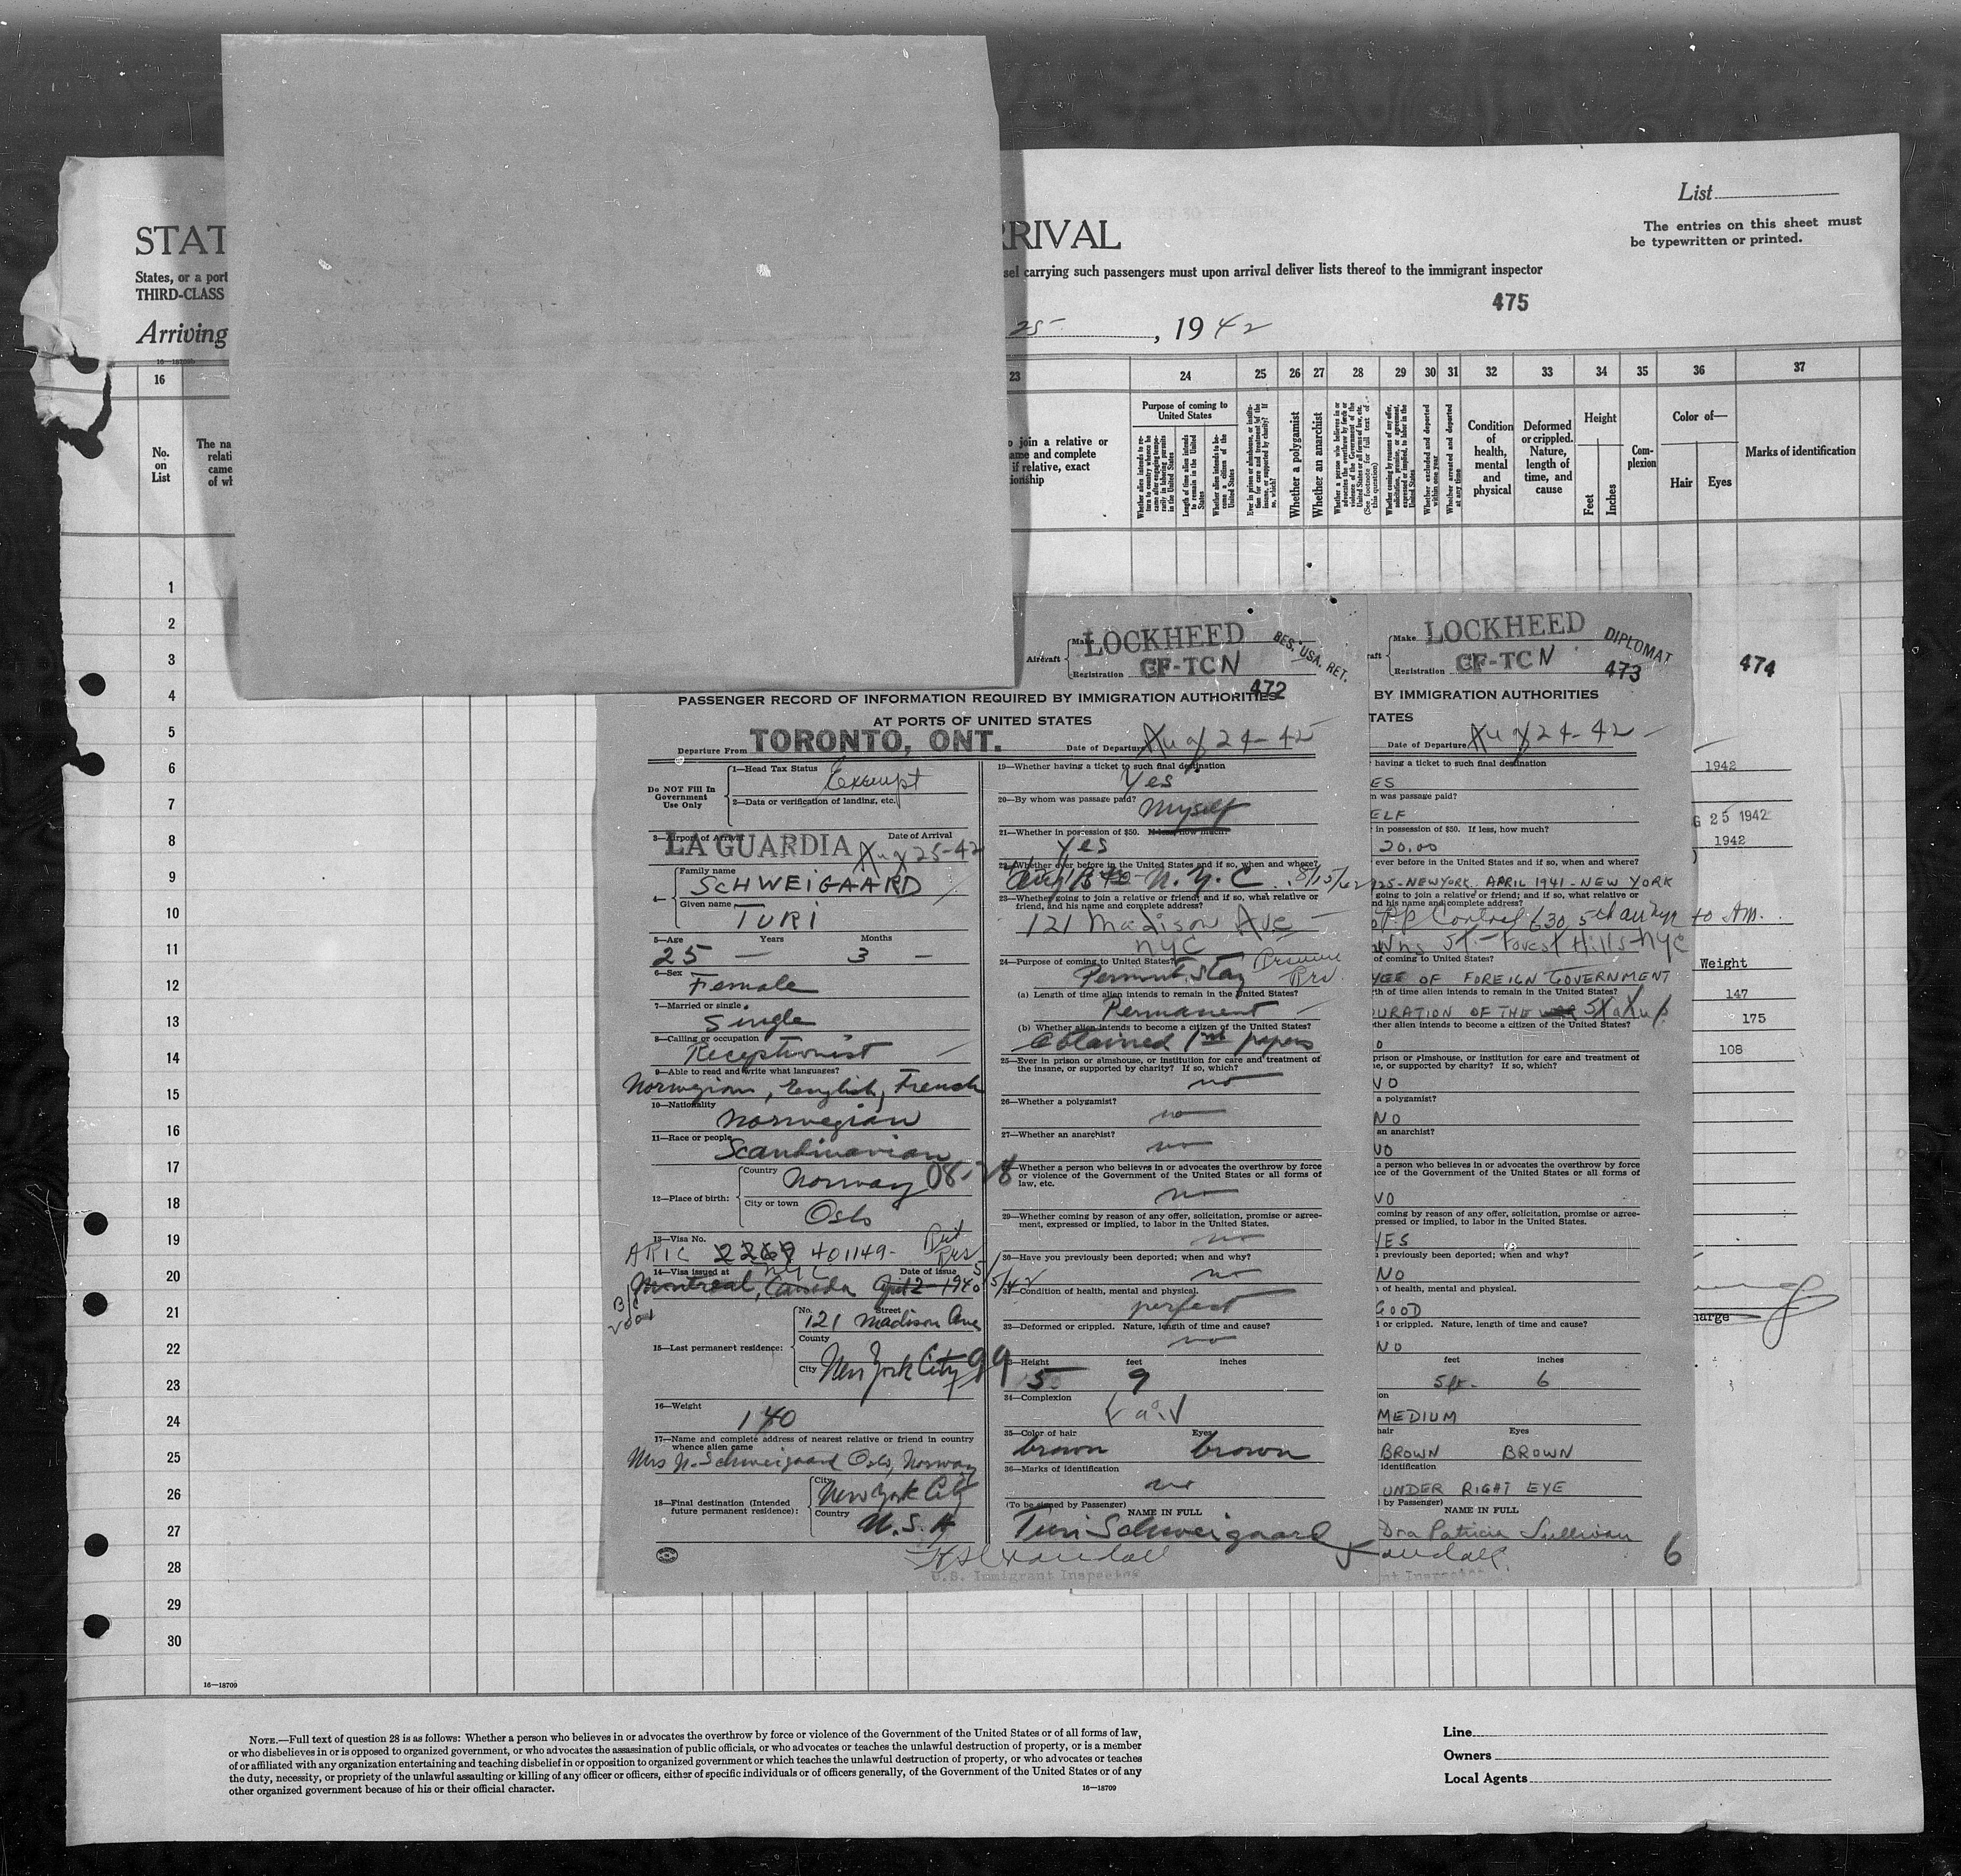 List
The entries on this sheet must
be typewritten or printed.
STAT
RRIVAL
States, or a port
sel carrying such passengers must upon arrival deliver lists thereof to the immigrant inspector
THIRD-CLASS
475
Arriving
25, 1942
16 23 24 25 26 27 28 29 30 31 32 33 34 35 36 37
No.
on
List
The na
relati
came
of wh
o join a relative or
ame and complete
if relative, exact
ionship
Purpose of coming to
United States
Whether a polygamist
Whether an anarchist
Condition
of
health,
mental
and
physical
Deformed
or crippled.
Nature,
length of
time, and
cause
Height
Feet
Inches
Com-
plexion
Color of—
Hair Eyes
Marks of identification
1
2
3
4
5
6
7
8
9
10
11
12
13
14
15
16
17
18
19
20
21
22
23
24
25
26
27
28
29
30
16—18709
Aircraft
Make LOCKHEED
BES. USA. RET.
Registration CF-TCN
472
PASSENGER RECORD OF INFORMATION REQUIRED BY IMMIGRATION AUTHORITIES
AT PORTS OF UNITED STATES
Departure From TORONTO, ONT. Date of Departure Aug 24-42
Do NOT Fill In
Government
Use Only
1—Head Tax Status Exempt
2—Data or verification of landing, etc.
3—Airport of Arrival Date of Arrival
LA GUARDIA Aug 25-42
4— Family name
SCHWEIGAARD
Given name
TURI
5—Age Years Months
25 — 3 —
6—Sex
Female
7—Married or single
Single
8—Calling or occupation
Receptionist
9—Able to read and write what languages?
Norwegian, English, French
10—Nationality
Norwegian
11—Race or people
Scandinavian
12—Place of birth:
Country Norway
City or town
Oslo
13—Visa No.
ARIC 2269 401149-
14—Visa issued at NYC Date of issue
Montreal, Canada April 2-1940 5/5/42
15—Last permanent residence:
No. Street
121 Madison Ave
County
City New York City 99
16—Weight
140
17—Name and complete address of nearest relative or friend in country
whence alien came
Mrs N. Schweigaard Oslo, Norway
18—Final destination (Intended
future permanent residence):
City New York City
Country
U.S.A
19—Whether having a ticket to such final destination
Yes
20—By whom was passage paid?
Myself
21—Whether in possession of $50. If less, how much?
Yes
22—Whether ever before in the United States and if so, when and where?
N.Y.C. 8/15/42
23—Whether going to join a relative or friend; and if so, what relative or
friend, and his name and complete address?
121 Madison Ave
NYC
24—Purpose of coming to United States?
Permnt. stay
(a) Length of time alien intends to remain in the United States?
Permanent
(b) Whether alien intends to become a citizen of the United States?
Obtained 1st papers
25—Ever in prison or almshouse, or institution for care and treatment of
the insane, or supported by charity? If so, which?
no
26—Whether a polygamist?
no
27—Whether an anarchist?
no
28—Whether a person who believes in or advocates the overthrow by force
or violence of the Government of the United States or all forms of
law, etc.
no
29—Whether coming by reason of any offer, solicitation, promise or agree-
ment, expressed or implied, to labor in the United States.
no
30—Have you previously been deported; when and why?
no
31—Condition of health, mental and physical.
perfect
32—Deformed or crippled. Nature, length of time and cause?
no
33—Height feet inches
5 9
34—Complexion
fair
35—Color of hair Eyes
brown brown
36—Marks of identification
no
(To be signed by Passenger)
NAME IN FULL
Turi Schweigaard
U.S. Immigrant Inspector
raft
Make LOCKHEED
DIPLOMAT
Registration CF-TCN
473
BY IMMIGRATION AUTHORITIES
TATES
Date of Departure Aug 24-42
having a ticket to such final destination
ES
m was passage paid?
ELF
in possession of $50. If less, how much?
20.00
ever before in the United States and if so, when and where?
925-NEWYORK. APRIL 1941-NEW YORK
going to join a relative or friend; and if so, what relative or
nd his name and complete address?
630 5th av nyc
Forest Hills-NYC
of coming to United States?
YEE OF FOREIGN GOVERNMENT
th of time alien intends to remain in the United States?
DURATION OF THE WAR
ther alien intends to become a citizen of the United States?
O
prison or almshouse, or institution for care and treatment of
e, or supported by charity? If so, which?
NO
a polygamist?
NO
an anarchist?
NO
a person who believes in or advocates the overthrow by force
ce of the Government of the United States or all forms of
NO
coming by reason of any offer, solicitation, promise or agree-
pressed or implied, to labor in the United States.
YES
previously been deported; when and why?
NO
of health, mental and physical.
GOOD
or crippled. Nature, length of time and cause?
NO
feet inches
5ft. 6
ion
MEDIUM
hair Eyes
BROWN BROWN
identification
UNDER RIGHT EYE
by Passenger)
NAME IN FULL
Dra Patricia Sullivan
nt Inspector
6
474
1942
G 25 1942
1942
to Am.
Weight
147
175
108
harge
NOTE.—Full text of question 28 is as follows: Whether a person who believes in or advocates the overthrow by force or violence of the Government of the United States or of all forms of law,
or who disbelieves in or is opposed to organized government, or who advocates the assassination of public officials, or who advocates or teaches the unlawful destruction of property, or is a member
of or affiliated with any organization entertaining and teaching disbelief in or opposition to organized government or which teaches the unlawful destruction of property, or who advocates or teaches
the duty, necessity, or propriety of the unlawful assaulting or killing of any officer or officers, either of specific individuals or of officers generally, of the Government of the United States or of any
other organized government because of his or their official character.
16—18709
Line
Owners
Local Agents